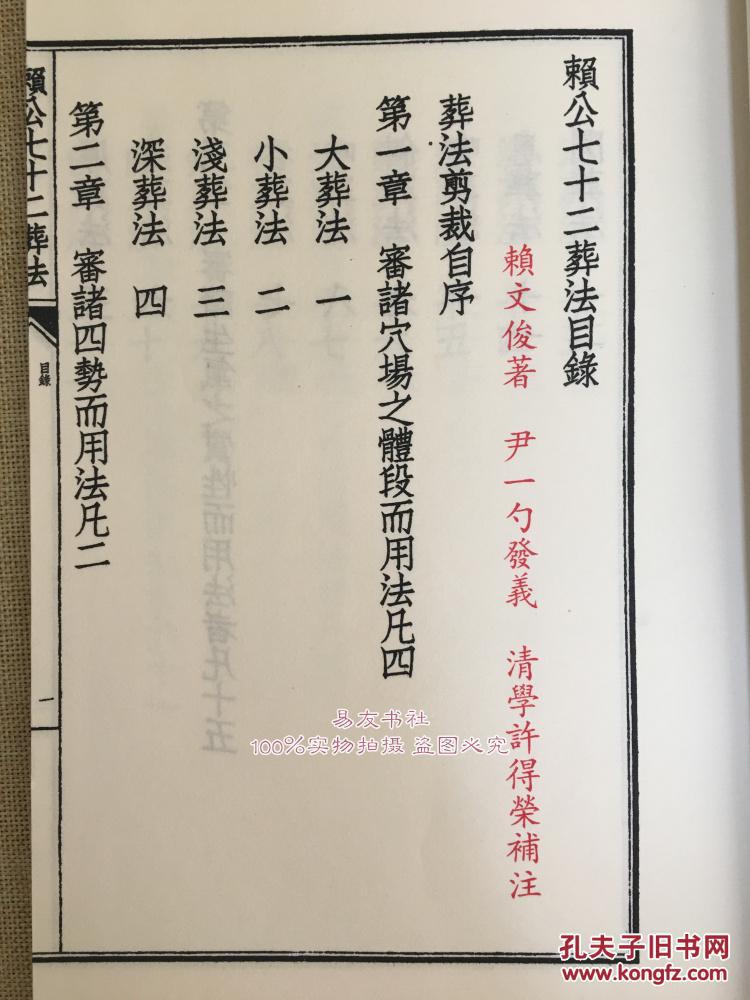 賴公七十二葬法目錄
賴文俊著 尹一勺發義 清學許得榮補注
葬法剪裁自序
第一章 審諸穴場之體段而用法凡四
大葬法 一
小葬法 二
淺葬法 三
深葬法 四
第二章 審諸四勢而用法凡二
賴公七十二葬法
目錄
一
易友书社
100%实物拍摄 盗图必究
孔夫子旧书网
www.kongfz.com